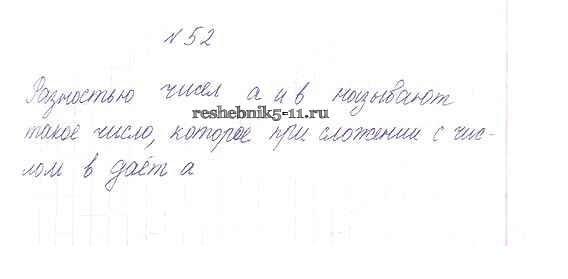 № 52
Разностью чисел а и в называют
reshebnik5-11.ru
такое число, которое при сложении с чис-
лом в даёт а